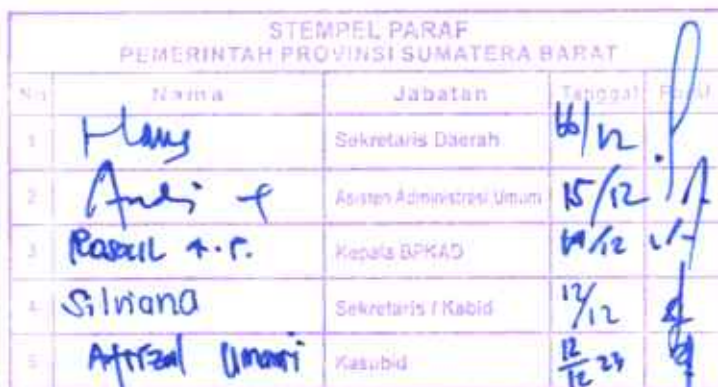 STEMPEL PARAF
PEMERINTAH PROVINSI SUMATERA BARAT
No Nama Jabatan Tanggal Paraf
1 Hans Sekretaris Daerah 16/12
2 Andi Asisten Administrasi Umum 15/12
3 Kepala BPKAD 14/12
4 Silviana Sekretaris / Kabid 12/12
5 Kasubid 12/12 23